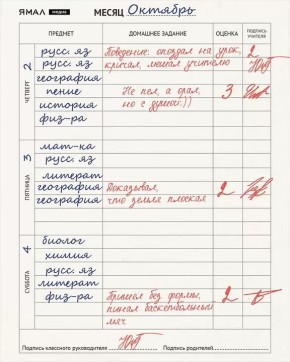 ЯМАЛ МЕДИА МЕСЯЦ Октябрь
ПРЕДМЕТ ДОМАШНЕЕ ЗАДАНИЕ ОЦЕНКА ПОДПИСЬ УЧИТЕЛЯ
ЧЕТВЕРГ 2
русс яз Поведение: опоздал на урок, 2
русс яз кричал, мешал учителю
география
пение Не пел, а орал, 3
история но с душой:))
физ-ра
ПЯТНИЦА 3
мат-ка
русс яз
литерат
география Доказывал, 2
география что земля плоская
СУББОТА 4
биолог
химия
русс яз
литерат
физ-ра Пришел без формы, 2
пинал баскетбольный
мяч
Подпись классного руководителя Подпись родителей